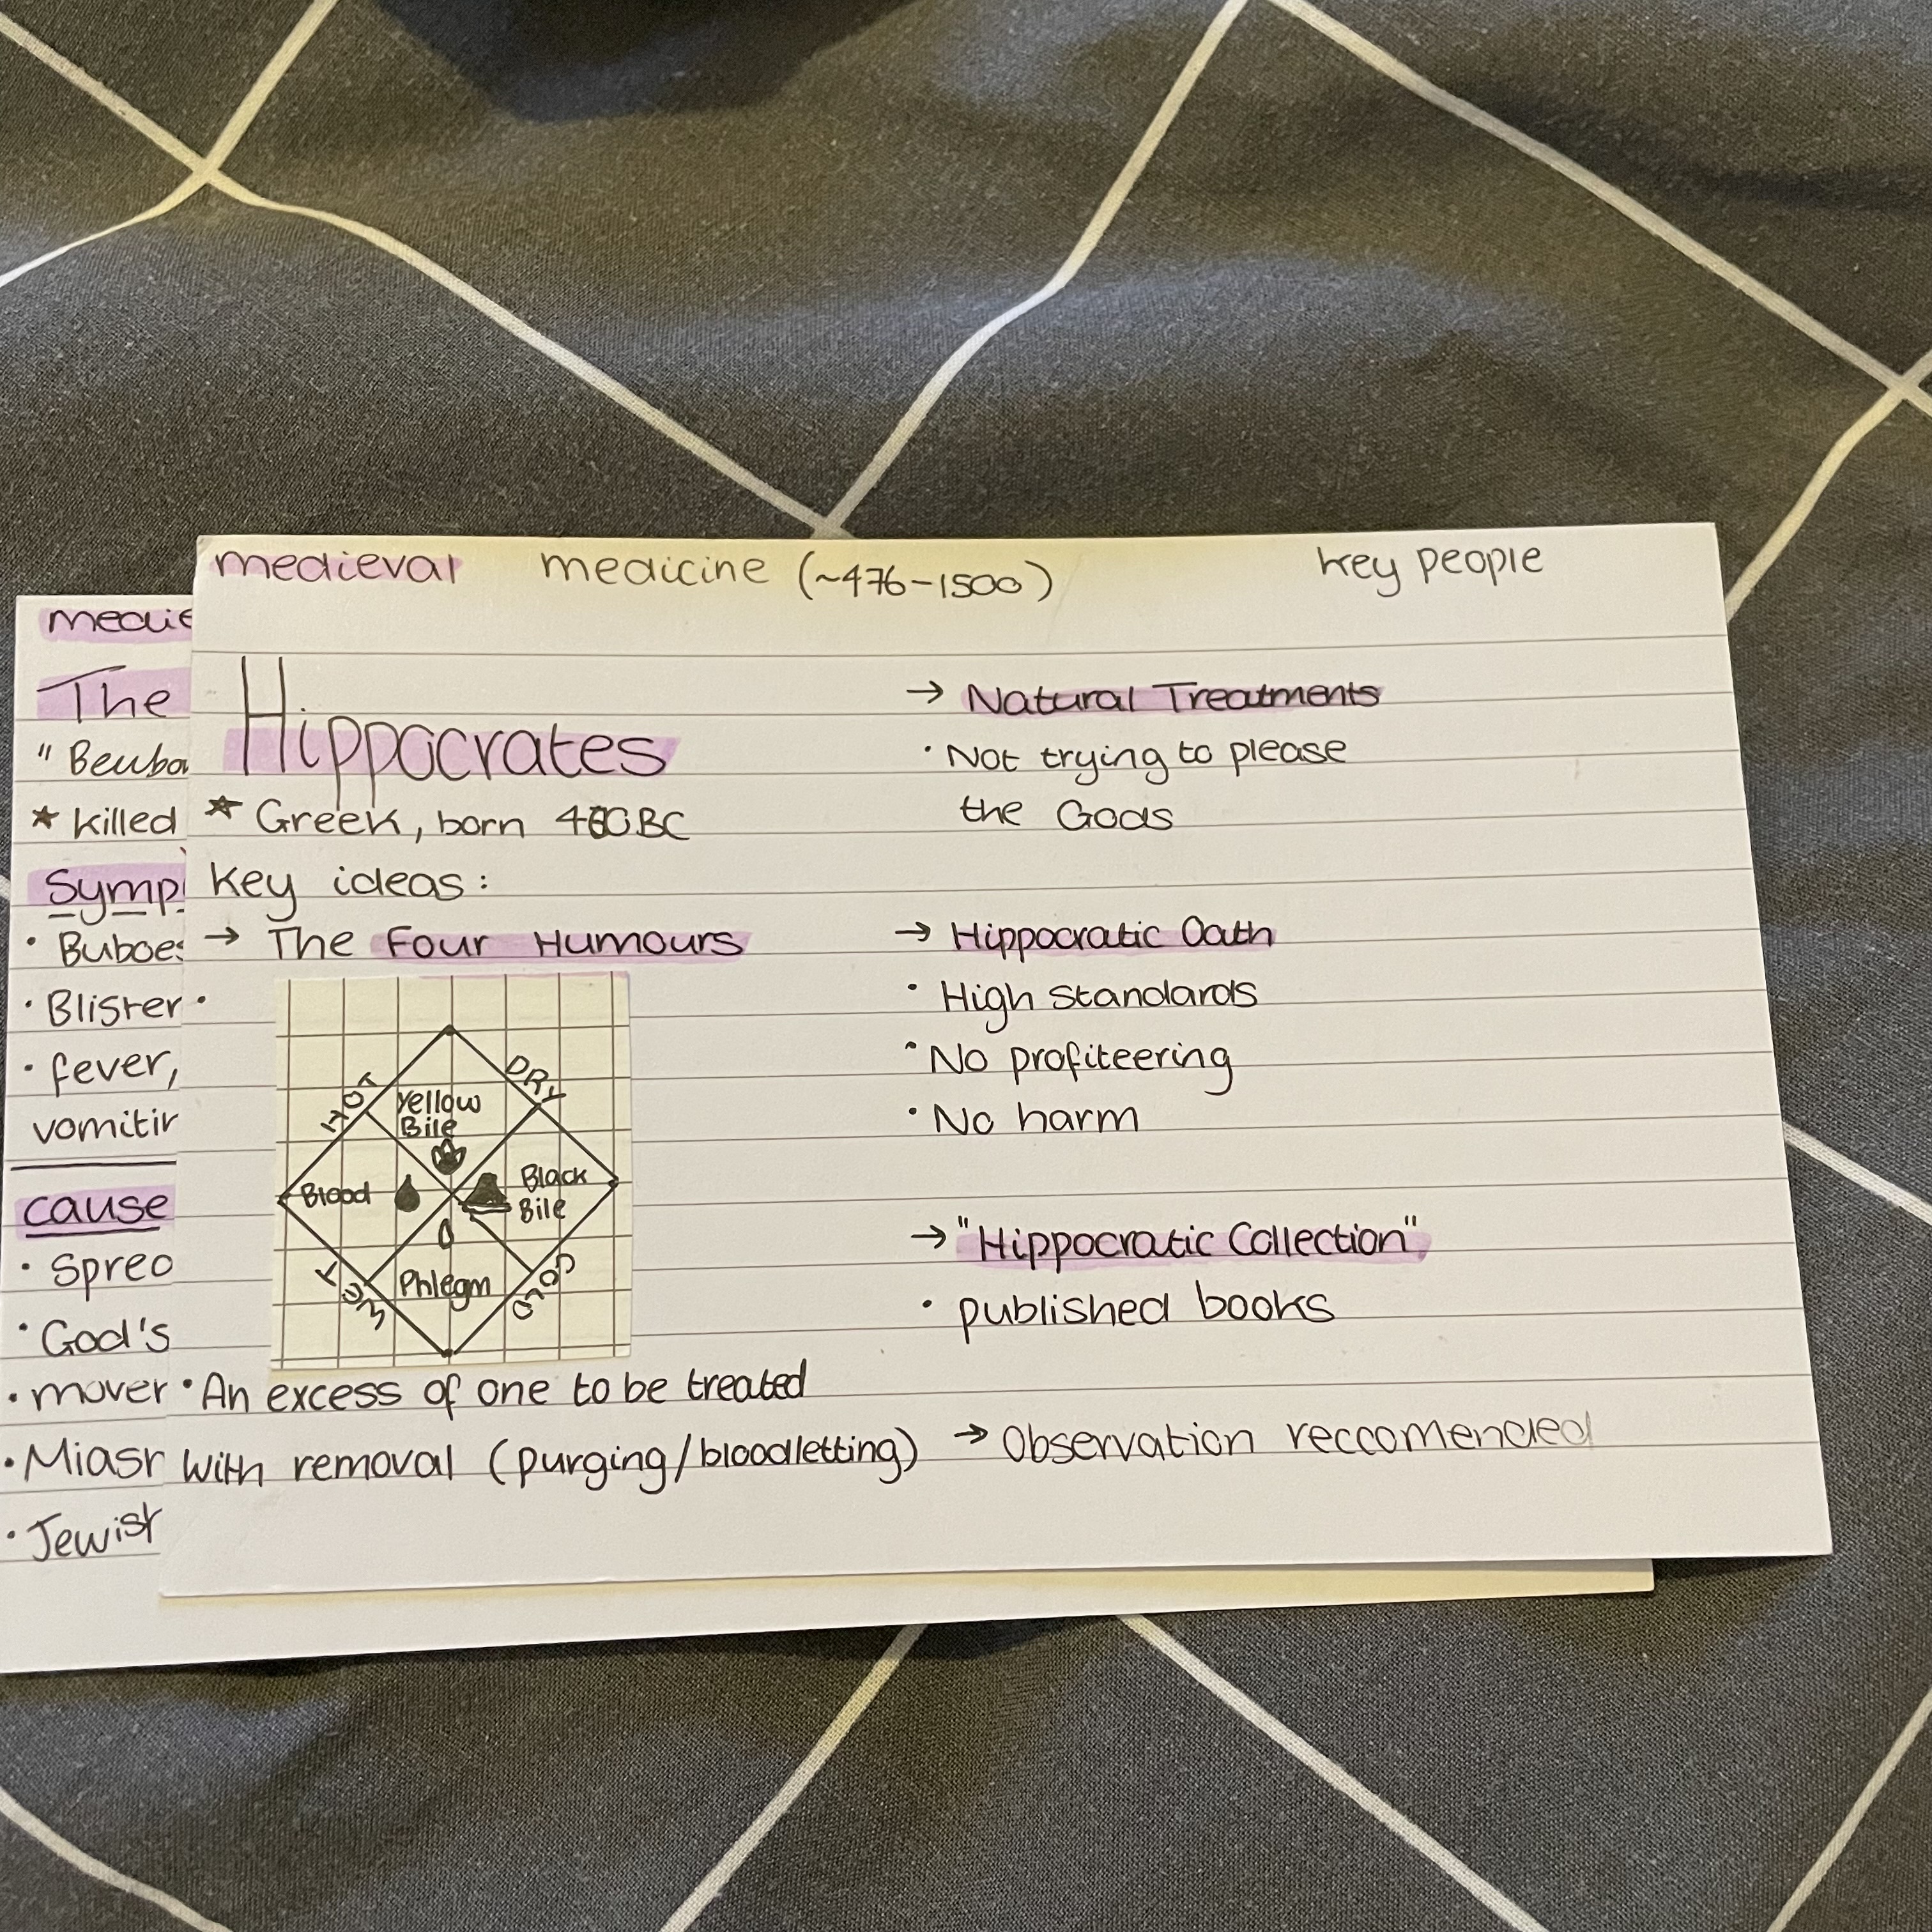 medieval medicine (~476-1500) key people
Hippocrates
★ Greek, born 460BC
key ideas:
→ The Four Humours
HOT
DRY
Yellow
Bile
Blood
Black
Bile
Phlegm
WET
COLD
• An excess of one to be treated
with removal (purging/bloodletting)
→ Natural Treatments
• Not trying to please
the Gods
→ Hippocratic Oath
• High standards
• No profiteering
• No harm
→ "Hippocratic Collection"
• published books
→ Observation reccomended
The
★ killed
• fever,
cause
• God's